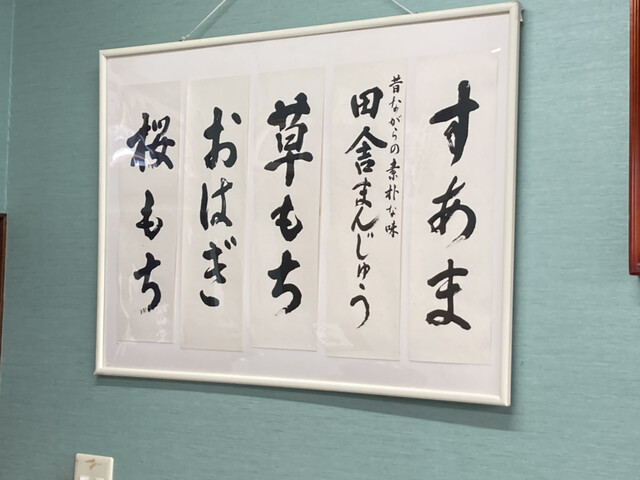 すあま
昔ながらの素朴な味
田舎まんじゅう
草もち
おはぎ
桜もち